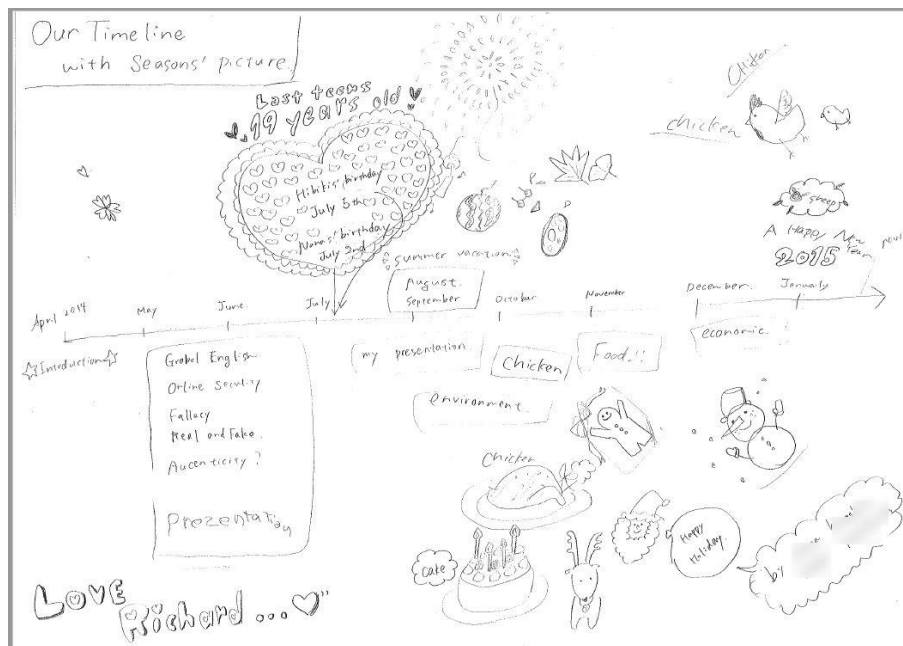 Our Timeline
with Seasons' picture
Last teens
19 years old
Hibiki's birthday
July 5th
Nana's birthday
July 2nd
summer vacation
chicken
sheep
A Happy New Year
2015
now
April 2014
May
June
July
August
September
October
November
December
January
Introduction
Grobal English
Online Seculity
Fallacy
Real and Fake
Aucenticity?
Prezentation
my presentation
environment
Chicken
Food!!
economic
Chicken
cake
Happy
Holiday
by
Love
Richard...